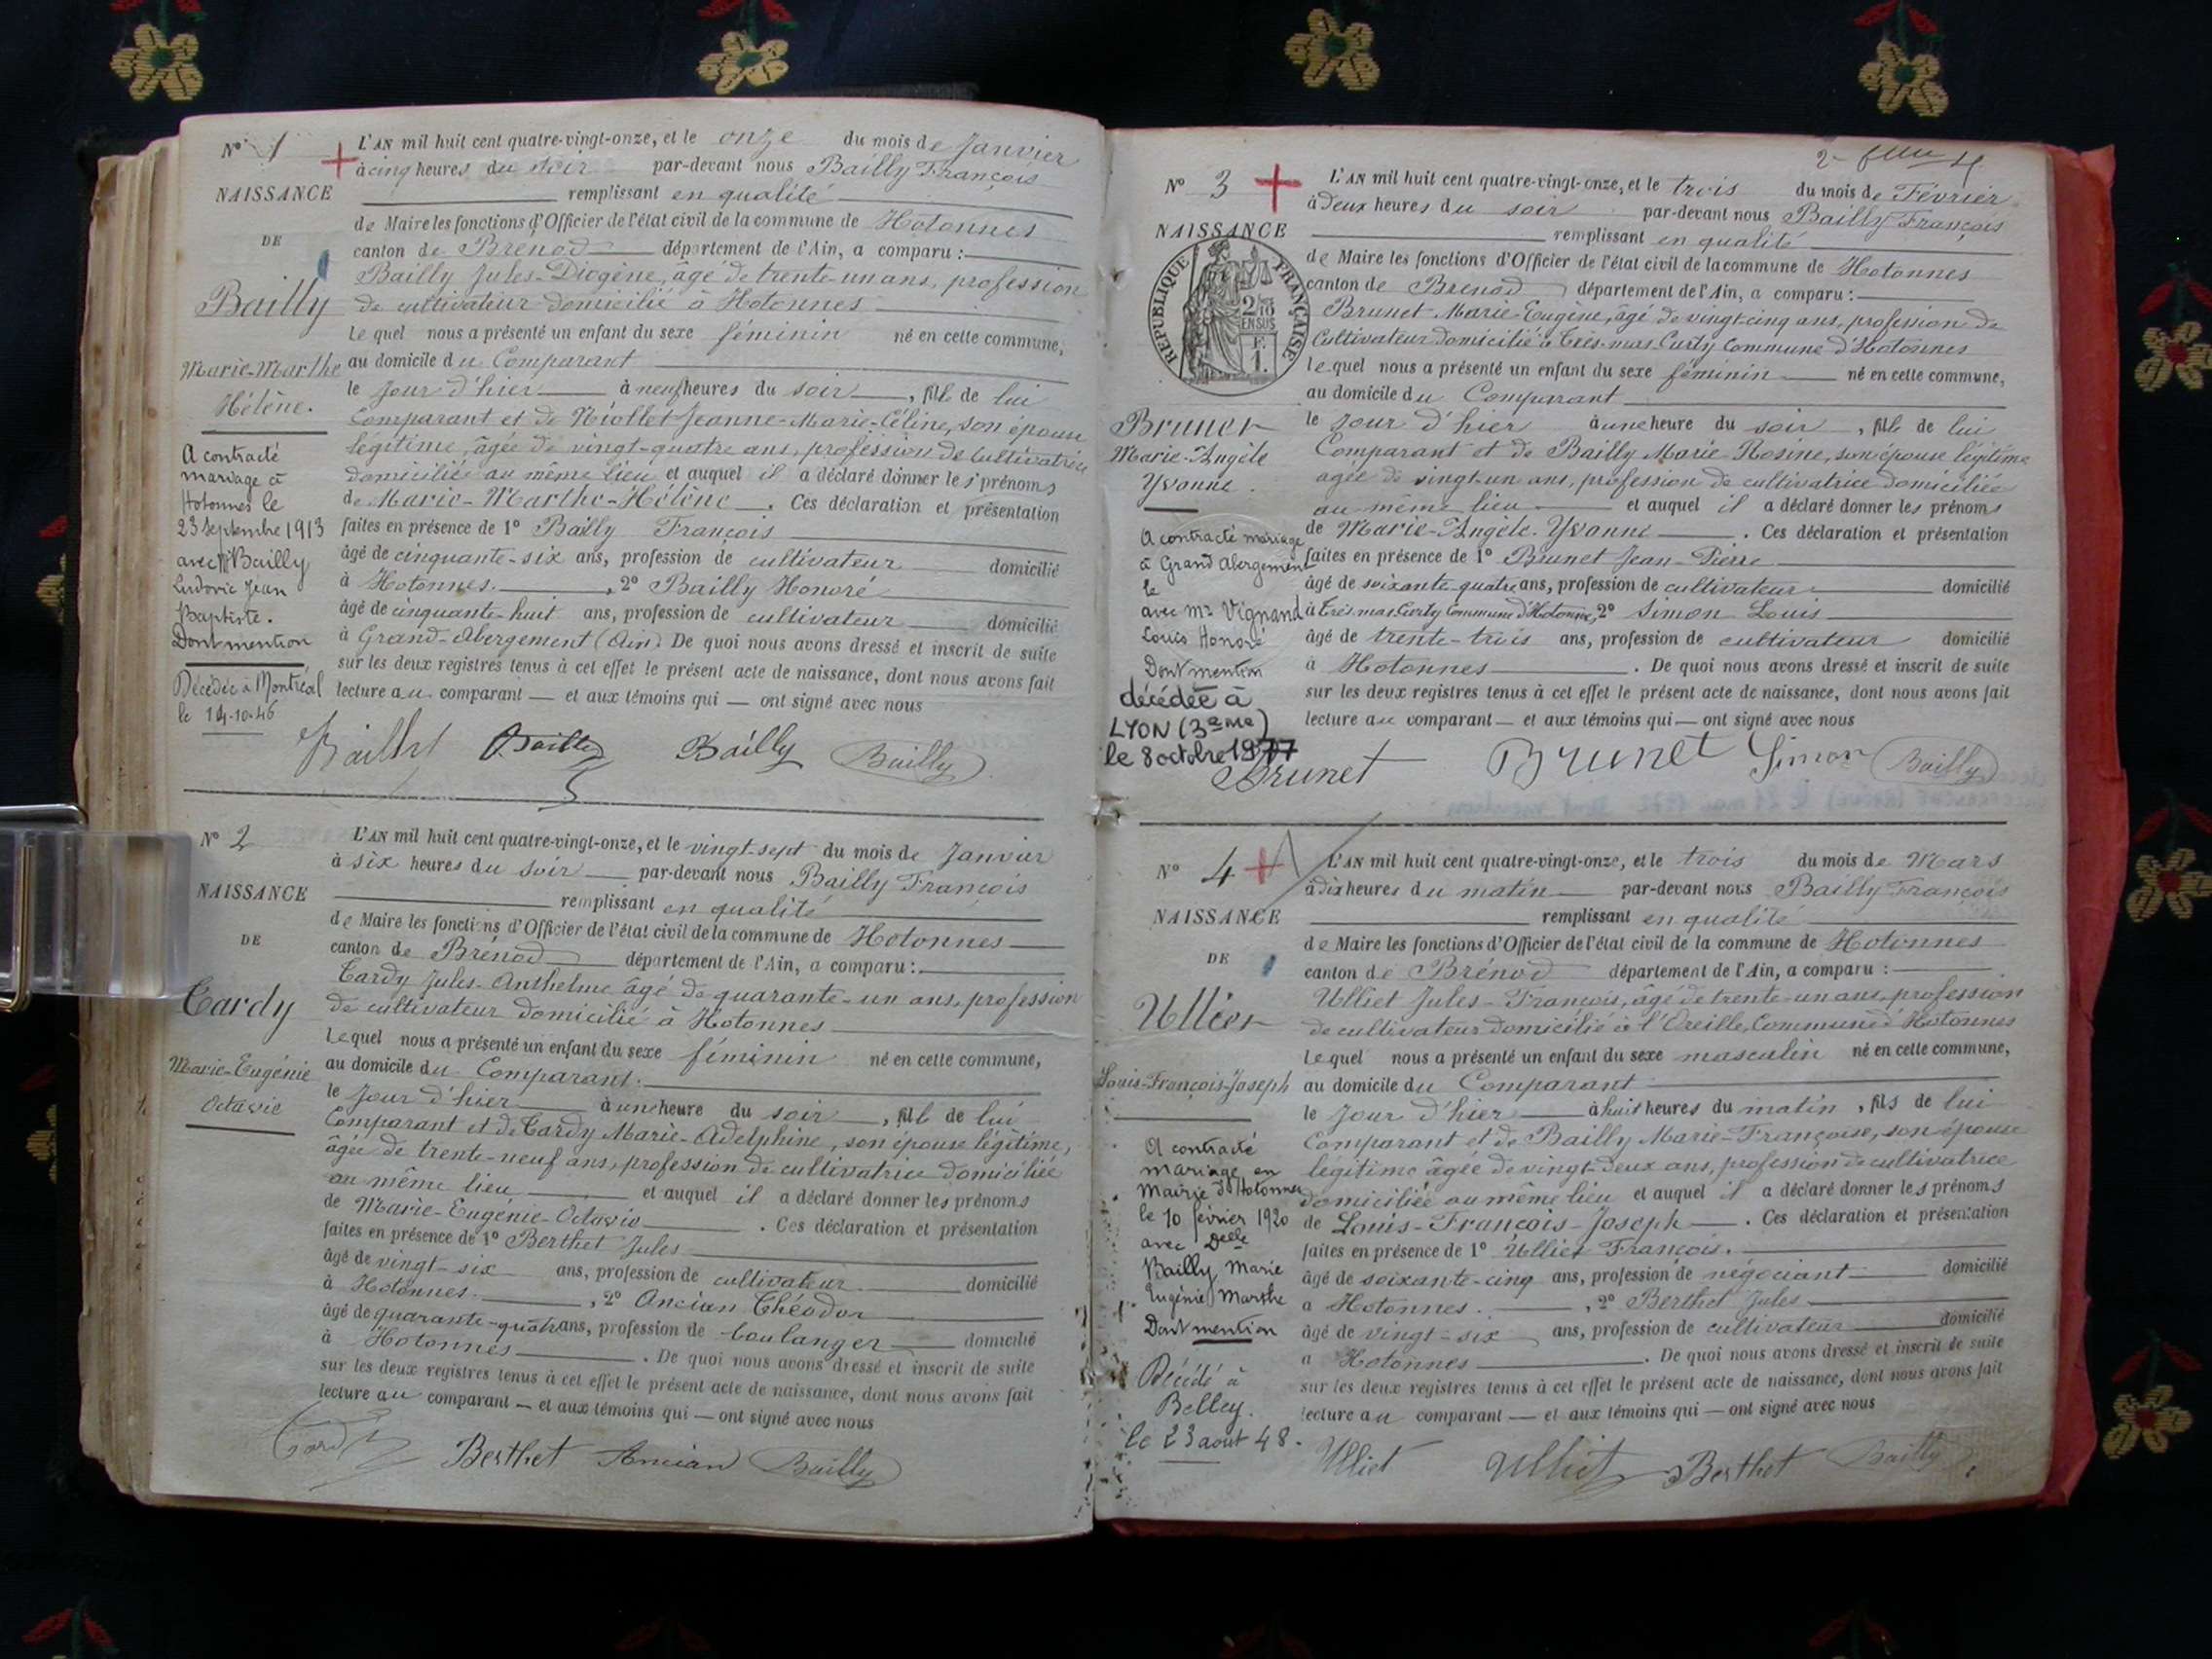 N° 1
NAISSANCE
DE
Bailly
Marie-Marthe
Hélène.
A contracté
mariage à
Hotonnes le
23 Septembre 1913
avec Mr Bailly
Ludovic Jean
Baptiste.
Dont mention
Décédée à Montréal
le 14-10-46
L'AN mil huit cent quatre-vingt-onze, et le onze du mois de Janvier
à cinq heures du soir par-devant nous Bailly François
remplissant en qualité
de Maire les fonctions d'Officier de l'état civil de la commune de Hotonnes
canton de Brenod département de l'Ain, a comparu :
Bailly Jules-Diogène, âgé de trente-un ans, profession
de cultivateur domicilié à Hotonnes
Lequel nous a présenté un enfant du sexe féminin né en cette commune,
au domicile du Comparant
le jour d'hier à neuf heures du soir, fille de lui
Comparant et de Niollet Jeanne-Marie-Céline, son épouse
légitime, âgée de vingt-quatre ans, profession de cultivatrice
domiciliée au même lieu et auquel il a déclaré donner les prénoms
de Marie-Marthe-Hélène. Ces déclaration et présentation
faites en présence de 1° Bailly François
âgé de cinquante-six ans, profession de cultivateur domicilié
à Hotonnes. , 2° Bailly Honoré
âgé de cinquante-huit ans, profession de cultivateur domicilié
à Grand-Abergement (Ain). De quoi nous avons dressé et inscrit de suite
sur les deux registres tenus à cet effet le présent acte de naissance, dont nous avons fait
lecture au comparant — et aux témoins qui — ont signé avec nous
Bailly Bailly Bailly Bailly
N° 2
NAISSANCE
DE
Tardy
Marie-Eugénie
Octavie
L'AN mil huit cent quatre-vingt-onze, et le vingt-sept du mois de Janvier
à six heures du soir par-devant nous Bailly François
remplissant en qualité
de Maire les fonctions d'Officier de l'état civil de la commune de Hotonnes
canton de Brénod département de l'Ain, a comparu :
Tardy Jules-Anthelme âgé de quarante-un ans, profession
de cultivateur domicilié à Hotonnes
Lequel nous a présenté un enfant du sexe féminin né en cette commune,
au domicile du Comparant.
le jour d'hier à une heure du soir, fille de lui
Comparant et de Tardy Marie-Adelphine, son épouse légitime,
âgée de trente-neuf ans, profession de cultivatrice domiciliée
au même lieu et auquel il a déclaré donner les prénoms
de Marie-Eugénie-Octavie. Ces déclaration et présentation
faites en présence de 1° Berthet Jules
âgé de vingt-six ans, profession de cultivateur domicilié
à Hotonnes. , 2° Ancian Théodor
âgé de quarante-quatre ans, profession de boulanger domicilié
à Hotonnes. De quoi nous avons dressé et inscrit de suite
sur les deux registres tenus à cet effet le présent acte de naissance, dont nous avons fait
lecture au comparant — et aux témoins qui — ont signé avec nous
Tardy Berthet Ancian Bailly
N° 3
NAISSANCE
REPUBLIQUE FRANÇAISE
2/10
EN SUS
F.
1.
Brunet
Marie-Angèle
Yvonne.
A contracté mariage
à Grand Abergement
le
avec Mr Vignand
Louis Honoré
Dont mention
décédée à
LYON (3ème)
le 8 octobre 1977
L'AN mil huit cent quatre-vingt-onze, et le trois du mois de Février
à Deux heures du soir par-devant nous Bailly François
remplissant en qualité
de Maire les fonctions d'Officier de l'état civil de la commune de Hotonnes
canton de Brenod département de l'Ain, a comparu :
Brunet Marie-Eugène, âgé de vingt-cinq ans, profession de
Cultivateur domicilié à Très-mas-Curty Commune d'Hotonnes
lequel nous a présenté un enfant du sexe féminin né en cette commune,
au domicile du Comparant
le jour d'hier à une heure du soir, fille de lui
Comparant et de Bailly Marie-Rosine, son épouse légitime
âgée de vingt-un ans, profession de cultivatrice domiciliée
au même lieu et auquel il a déclaré donner les prénoms
de Marie-Angèle-Yvonne. Ces déclaration et présentation
faites en présence de 1° Brunet Jean-Pierre
âgé de soixante-quatre ans, profession de cultivateur domicilié
à Très-mas-Curty Commune d'Hotonnes, 2° Simon Louis
âgé de trente-trois ans, profession de cultivateur domicilié
à Hotonnes. De quoi nous avons dressé et inscrit de suite
sur les deux registres tenus à cet effet le présent acte de naissance, dont nous avons fait
lecture au comparant — et aux témoins qui — ont signé avec nous
Brunet Brunet Simon Bailly
N° 4
NAISSANCE
DE
Ulliet
Louis-François-Joseph
A contracté
mariage en
Mairie d'Hotonnes
le 10 février 1920
avec Delle
Bailly Marie
Eugénie Marthe
Dont mention
Décédé à
Belley.
le 23 août 48.
L'AN mil huit cent quatre-vingt-onze, et le trois du mois de Mars
à dix heures du matin par-devant nous Bailly François
remplissant en qualité
de Maire les fonctions d'Officier de l'état civil de la commune de Hotonnes
canton de Brénod département de l'Ain, a comparu :
Ulliet Jules-François, âgé de trente-un ans, profession
de cultivateur domicilié à l'Oreille, Commune d'Hotonnes
Lequel nous a présenté un enfant du sexe masculin né en cette commune,
au domicile du Comparant
le jour d'hier à huit heures du matin, fils de lui
Comparant et de Bailly Marie-Françoise, son épouse
légitime âgée de vingt-deux ans, profession de cultivatrice
domiciliée au même lieu et auquel il a déclaré donner les prénoms
de Louis-François-Joseph. Ces déclaration et présentation
faites en présence de 1° Ulliet François.
âgé de soixante-cinq ans, profession de négociant domicilié
à Hotonnes. , 2° Berthet Jules
âgé de vingt-six ans, profession de cultivateur domicilié
à Hotonnes. De quoi nous avons dressé et inscrit de suite
sur les deux registres tenus à cet effet le présent acte de naissance, dont nous avons fait
lecture au comparant — et aux témoins qui — ont signé avec nous
Ulliet Ulliet Berthet Bailly